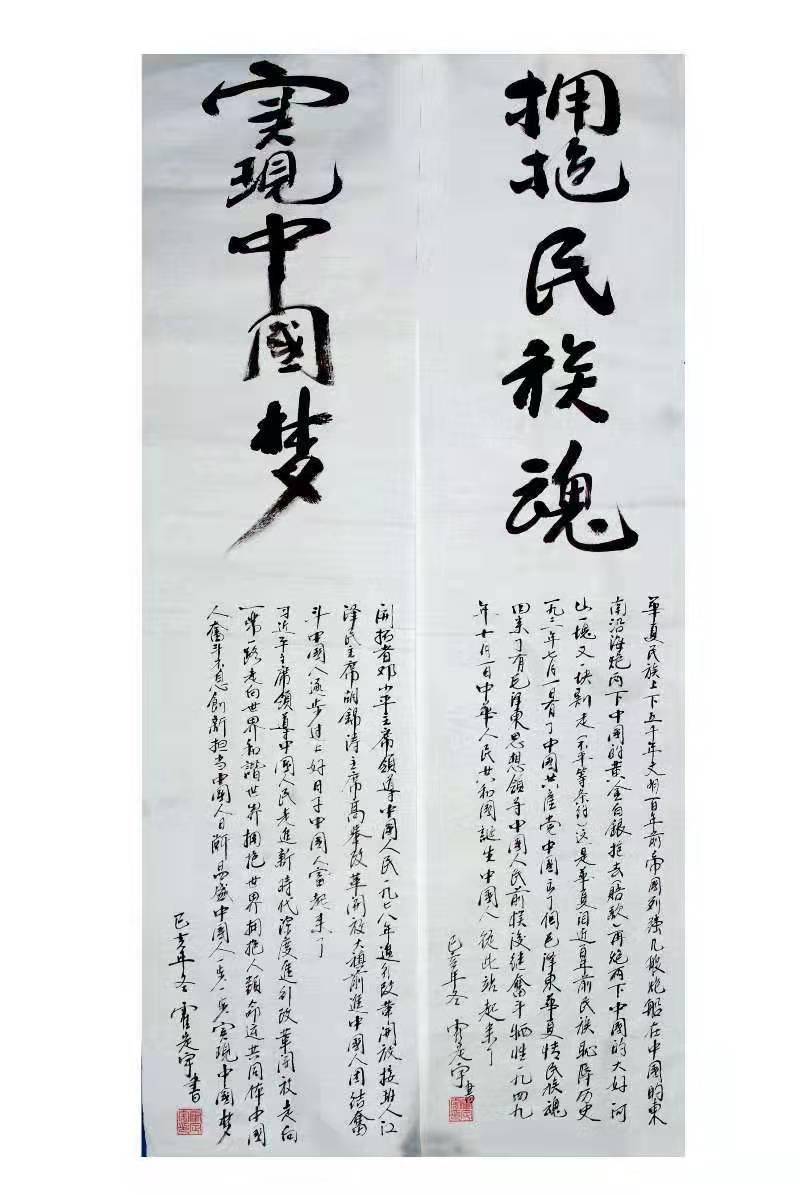 拥抱民族魂
華夏民族上下五千年文明百年前帝國列強几艘炮船在中國的東
南沿海炮两下中國的黄金白銀去(賠款)再炮两下中國的大好河
山一塊又一块割走(不平等条约)这是華夏近百年前民族恥辱历史
一九二一年七月一日有了中國共產党中國出了個毛泽東華夏情民族魂
回来了有毛泽東思想領导中國人民前撲後继奮斗牺牲一九四九
年十月一日中華人民共和國誕生中國人從此站起来了
己亥年冬 霍先宇書
實現中國梦
開拓者邓小平主席領導中國人民一九七八年進行改革開放接班人江
泽民主席胡錦涛主席高舉改革開放大旗前進中國人团结奮
斗中國人逐步过上好日子中國人富起来了
习近平主席領導中國人民走進新時代深度進行改革開放走向
一带一路走向世界和諧世界拥抱世界拥抱人類命运共同体中國
人奮斗不息創新担当中國人日漸昌盛中國人一定一定實現中國梦
己亥年冬 霍先宇書